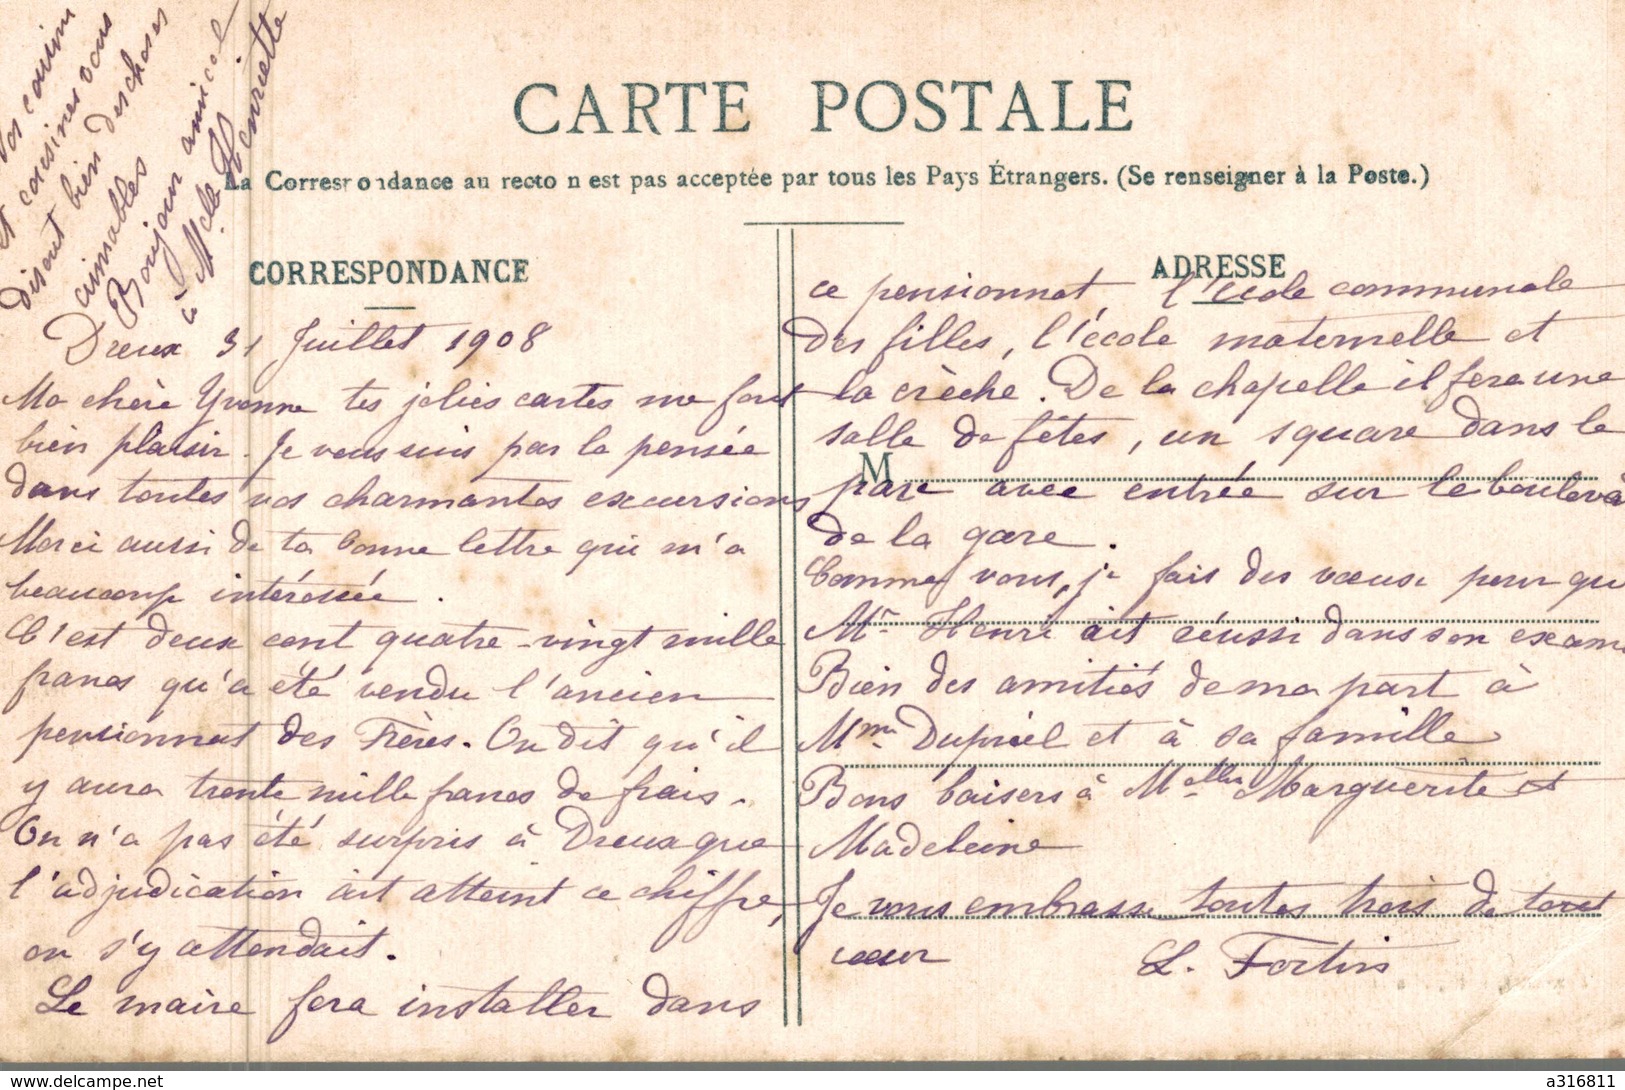 Vos cousins
et cousines vous
disent bien des choses
aimables
Bonjour amical
à Melle Henriette
CARTE POSTALE
La Correspondance au recto n'est pas acceptée par tous les Pays Étrangers. (Se renseigner à la Poste.)
CORRESPONDANCE
Dreux 31 Juillet 1908
Ma chère Yvonne tes jolies cartes me font
bien plaisir. Je vous suis par la pensée
dans toutes vos charmantes excursions
Merci aussi de ta bonne lettre qui m'a
beaucoup intéressée.
C'est deux cent quatre-vingt mille
francs qu'a été vendu l'ancien
pensionnat des Frères. On dit qu'il
y aura trente mille francs de frais.
On n'a pas été surpris à Dreux que
l'adjudication ait atteint ce chiffre,
on s'y attendait.
Le maire fera installer dans
ADRESSE
ce pensionnat l'école communale
des filles, l'école maternelle et
la crèche. De la chapelle il fera une
salle de fêtes, un square dans le
M
parc avec entrée sur le boulevà
de la gare.
Comme vous, je fais des vœux pour que
Mr Henri ait réussi dans son exam
Bien des amitiés de ma part à
Mme Dupriel et à sa famille
Bons baisers à Melles Marguerite et
Madeleine
Je vous embrasse toutes trois de tout
cœur
L. Fortin
www.delcampe.net
a316811